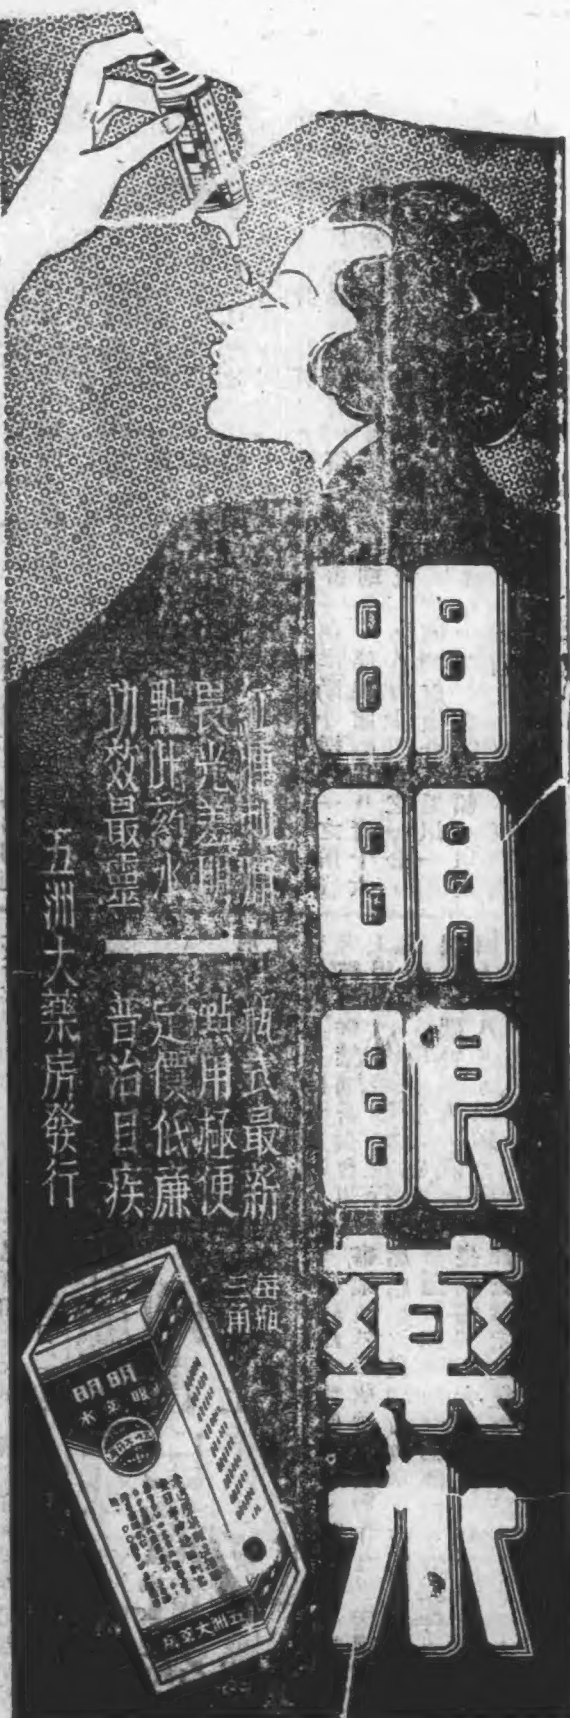 明明眼薬水
紅腫刺痛
畏光羞明
點此药水
功效最靈
瓶式最新
點用極便
定價低廉
普治目疾
每瓶
三角
五洲大薬房發行
明明
眼药水
五洲大药房